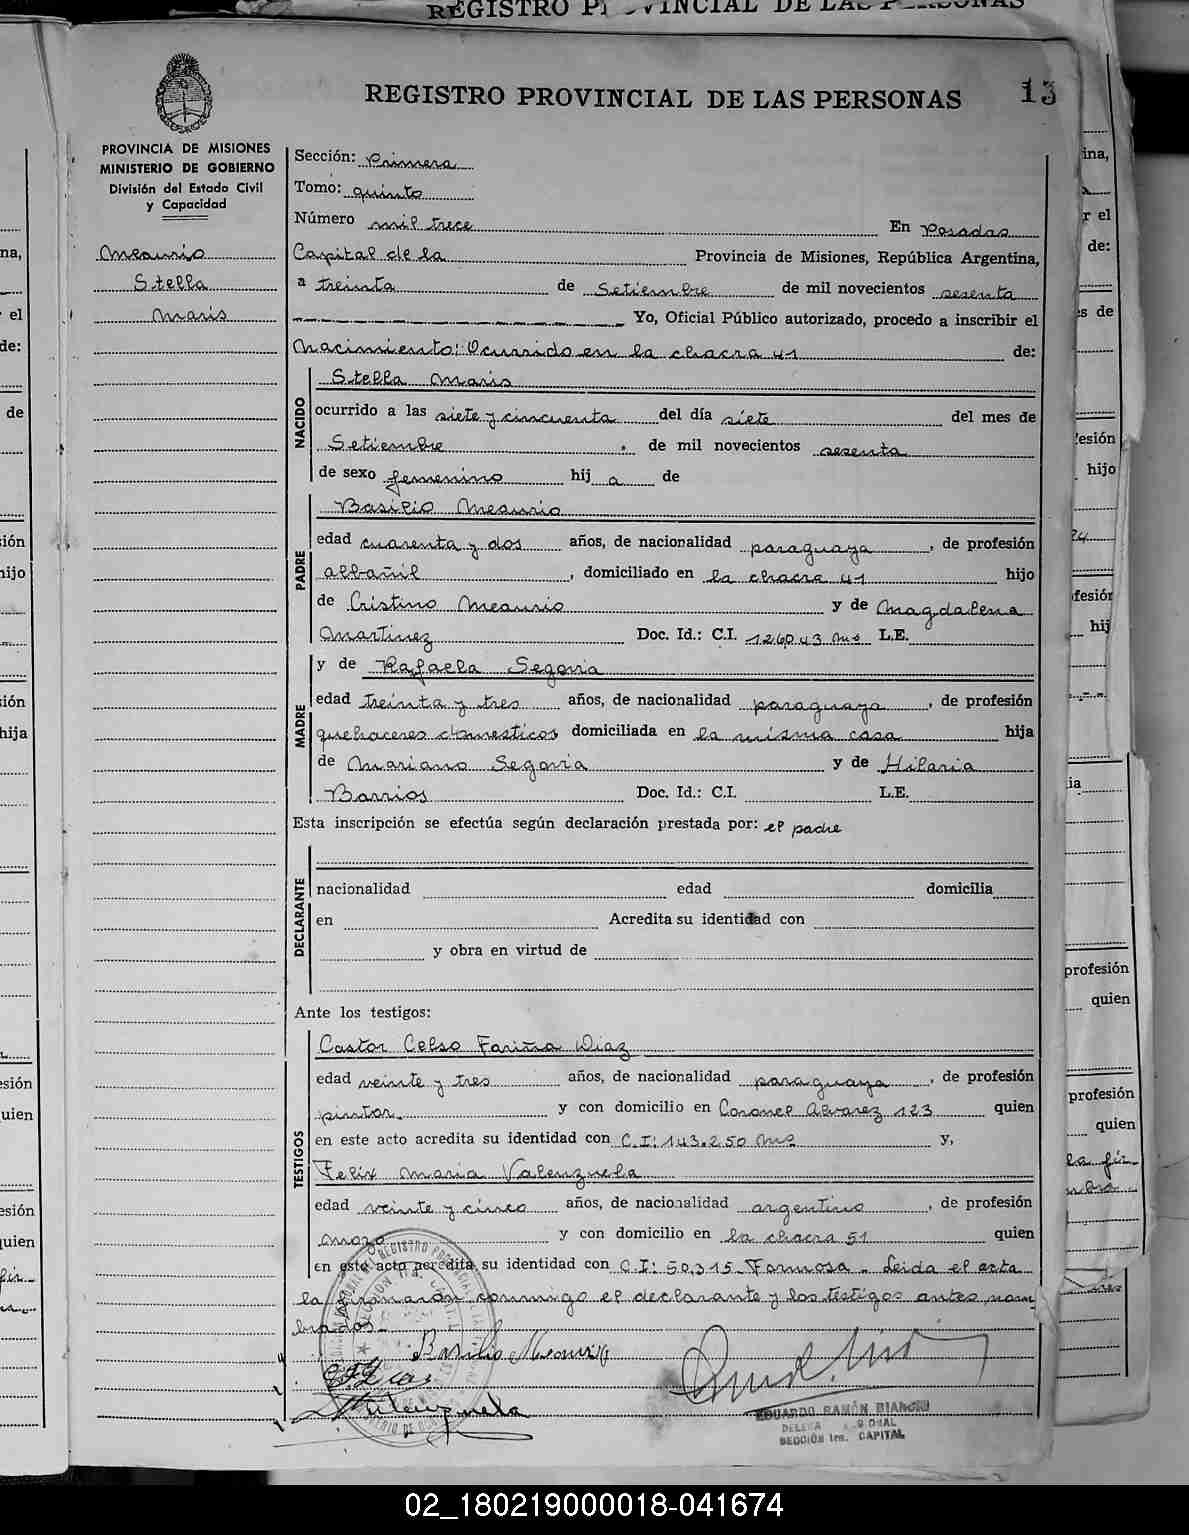 REGISTRO PROVINCIAL DE LAS PERSONAS
REGISTRO PROVINCIAL DE LAS PERSONAS
13
PROVINCIA DE MISIONES
MINISTERIO DE GOBIERNO
División del Estado Civil
y Capacidad
Meaurio
Stella
Maris
Sección: Primera
Tomo: quinto
Número mil trece En Posadas
Capital de la Provincia de Misiones, República Argentina,
a treinta de Setiembre de mil novecientos sesenta
Yo, Oficial Público autorizado, procedo a inscribir el
Nacimiento: Ocurrido en la chacra 41 de:
NACIDO
Stella Maris
ocurrido a las siete y cincuenta del día siete del mes de
Setiembre, de mil novecientos sesenta
de sexo femenino hij a de
PADRE
Basilio Meaurio
edad cuarenta y dos años, de nacionalidad paraguaya, de profesión
albañil, domiciliado en la chacra 41 hijo
de Cristino Meaurio y de Magdalena
Martinez Doc. Id.: C.I. 126043 Mns L.E.
MADRE
y de Rafaela Segovia
edad treinta y tres años, de nacionalidad paraguaya, de profesión
quehaceres domesticos domiciliada en la misma casa hija
de Mariano Segovia y de Hilaria
Barrios Doc. Id.: C.I. L.E.
Esta inscripción se efectúa según declaración prestada por: el padre
DECLARANTE
nacionalidad edad domicilia
en Acredita su identidad con
y obra en virtud de
Ante los testigos:
TESTIGOS
Castor Celso Fariña Diaz
edad veinte y tres años, de nacionalidad paraguaya, de profesión
pintor. y con domicilio en Coronel Alvarez 123 quien
en este acto acredita su identidad con C.I: 143.250 Mns y,
Felix Maria Valenzuela
edad veinte y cinco años, de nacionalidad argentino, de profesión
mozo y con domicilio en la chacra 51 quien
en este acto acredita su identidad con C.I: 50.315 Formosa - Leida el acta
la firmarón conmigo el declarante y los testigos antes nom-
brados.-
Basilio Meaurio
Valenzuela
EDUARDO RAMÓN BIANCHI
SECCIÓN 1ra. CAPITAL
02_180219000018-041674